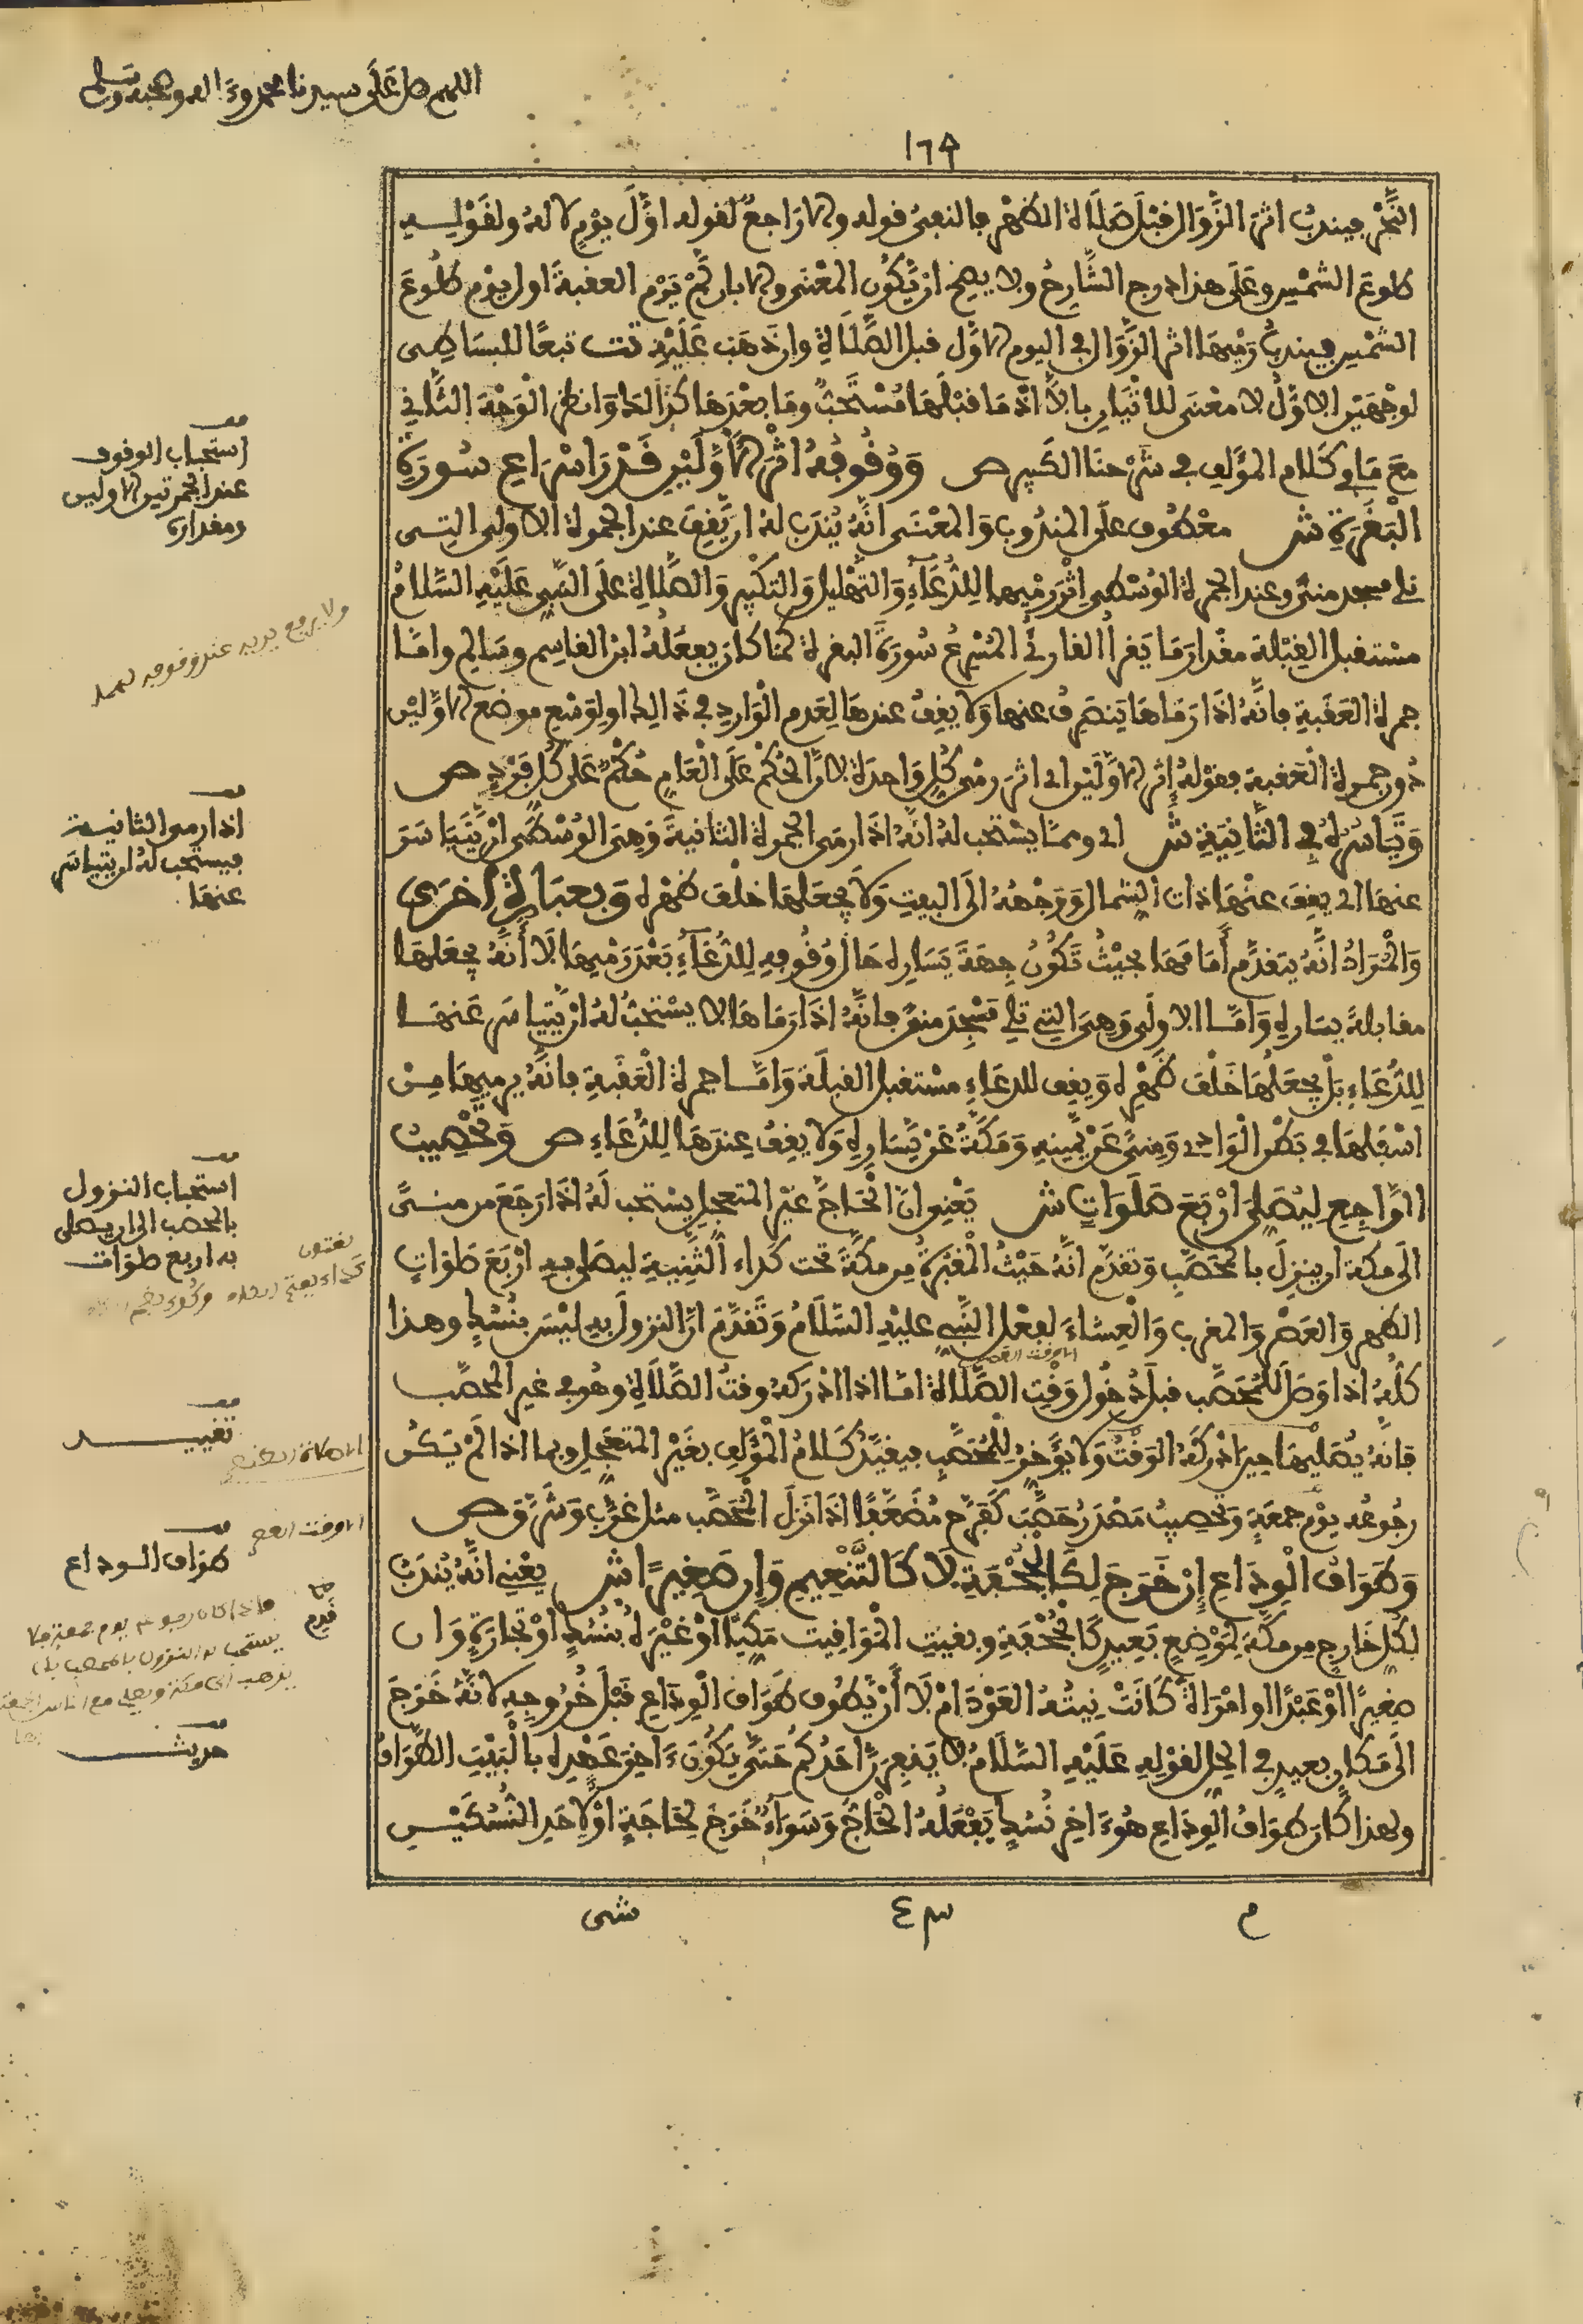 اللهم صل على سيدنا محمد وءاله وصحبه وسلم
النحر فيندب اثر الزوال قبل صلاة الظهر فالنعى قوله والا راجع لقوله اول يوم لا له ولقوله
طلوع الشمس وعلى هذا درج الشارح ولا يصح ان يكون المعنى والا بان لم يرم العقبة اول يوم طلوع
الشمس فيندب رميها اثر الزوال في اليوم الاول قبل الصلاة وان ذهب عليه تت تبعا للبساطى
لوجهين الاول لا معنى للاتيان بالا اذ ما قبلها مستحب وما بعدها كذالك وانظر الوجه الثاني
مع ما في كلام المؤلف في شرحنا الكبير ص ووقوفه اثر الاوليين قدر اسراع سورة
البقرة ش معطوف على المندوب والمعنى انه يندب له ان يقف عند الجمرة الاولى التى
تلي مسجد منى وعند الجمرة الوسطى اثر رميهما للدعاء والتهليل والتكبير والصلاة على النبي عليه السلام
مستقبل القبلة مقدار ما يقرأ القارئ المسرع سورة البقرة كما كان يفعله ابن القاسم وسالم واما
جمرة العقبة فانه اذا رماها ينصرف عنها ولا يقف عندها لعدم الوارد في ذالك او لتوسع موضع الاوليين
دون جمرة العقبة فقوله اثر الاوليين اى اثر رمي كل واحدة لان الحكم على العام حكم على كل فرد ص
وتياسره في الثانية ش اى ومما يستحب له انه اذا رمى الجمرة الثانية وهى الوسطى ان يتياسر
عنها اى يقف عنها ذات الشمال ووجهه الى البيت ولا يجعلها خلف ظهره وبعبارة اخرى
والمراد انه يتقدم أمامها بحيث تكون جهة يساره حال وقوفه للدعاء بعد رميها لا أنه يجعلها
مقابلة يساره واما الاولى وهى التي تلي مسجد منى فانه اذا رماها لا يستحب له ان يتياسر عنها
للدعاء بل يجعلها خلف ظهره ويقف للدعاء مستقبل القبلة واما جمرة العقبة فانه يرميها من
اسفلها في بطن الوادي ومنى عن يمينه ومكة عن يساره ولا يقف عندها للدعاء ص وتحصيب
الراجع ليصلي اربع صلوات ش يعني ان الحاج غير المتعجل يستحب له اذا رجع من منى
الى مكة ان ينزل بالمحصب وتقدم انه حيث المقبرة من مكة تحت كداء الثنية ليصلي فيه اربع صلوات
الظهر والعصر والمغرب والعشاء لفعل النبي عليه السلام وتقدم ان النزول به ليس بنسك وهذا
كله اذا وصل للمحصب قبل دخول وقت الصلاة اما اذا ادركه وقت الصلاة وهو في غير المحصب
فانه يصليها حين ادركه الوقت ولا يؤخر للمحصب فيقيد كلام المؤلف بغير المتعجل وبما اذا لم يكن
رجوعه يوم جمعة وتحصيب مصدر حصب كفرح مضعفا اذا نزل المحصب مثل غرب وشرق ص
وطواف الوداع إن خرج لكالجحفة لا كالتنعيم وإن صغيرا ش يعني انه يندب
لكل خارج من مكة لموضع بعيد كالجحفة وبقيت المواقيت مكيا او غيره لنسك او تجارة وان
صغيرا او عبدا او امرأة كانت نيته العود ام لا أن يطوف طواف الوداع قبل خروجه لا نه خرج
الى مكان بعيد في الحل لقوله عليه السلام لا ينفرن احدكم حتى يكون ءاخر عهده بالبيت الطواف
ولهذا كان طواف الوداع هو ءاخر نسك يفعله الحاج وسواء خرج لحاجة او لاحد النسكين
استحباب الوقوف
عند الجمرتين الاوليين
ومقداره
ولا يرفع يديه عند وقوفه
اذا رمى الثانية
فيستحب له ان يتياسر
عنها
استحباب النزول
بالمحصب الى ان يصلى
به اربع صلوات
تقييد
طواف الوداع
فاذا كان رجوعه يوم جمعة فلا
يستحب له النزول بالمحصب بل
يذهب الى مكة ويصلي مع الناس الجمعة
حديث
م
س ٤
شى